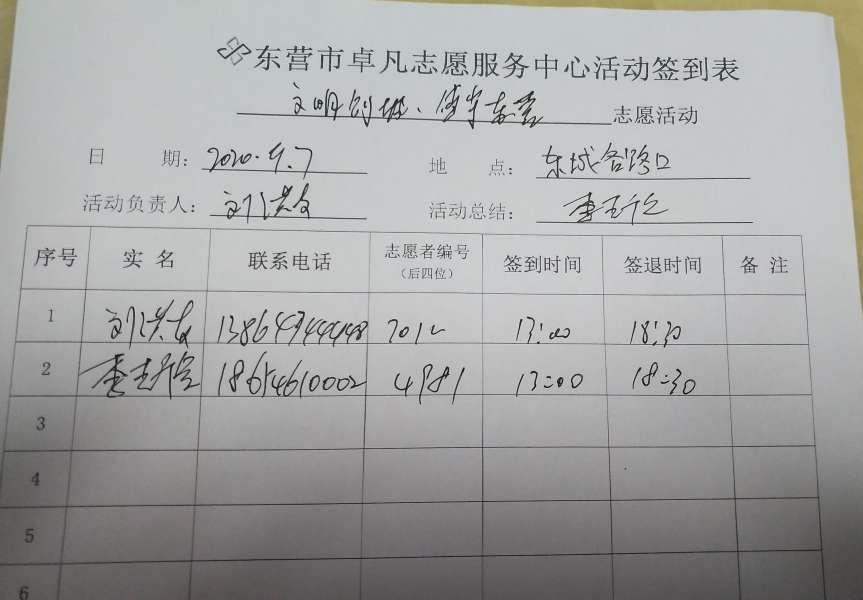 东营市卓凡志愿服务中心活动签到表
文明创城、 志愿活动
日 期： 2020.9.7 地 点： 东城各路口
活动负责人： 刘洪友 活动总结：
序号 实 名 联系电话 志愿者编号 签到时间 签退时间 备 注
（后四位）
1 刘洪友 7012 13:00 18:30
2 18654610002 4981 13:00 18:30
3
4
5
6